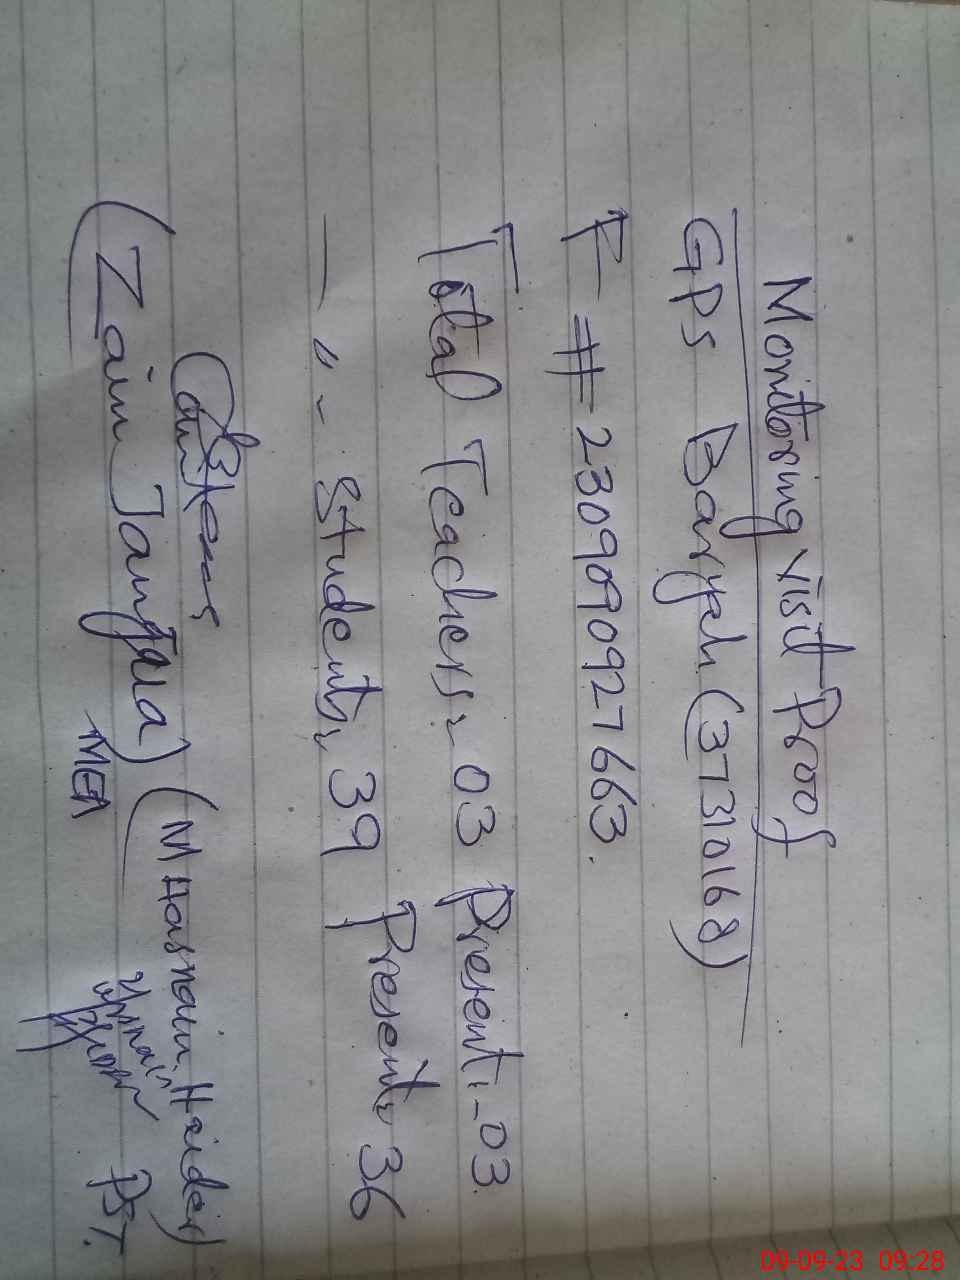 Monitoring Visit Proof
GPS Baryah (37310168)
F # 2309090927663.
Total Teachers 03 Present 03
– 〃 – Students 39 Present 36
(Zain Janjua) (M Hasnain Haider)
MEA PST.
09-09-23 09:28